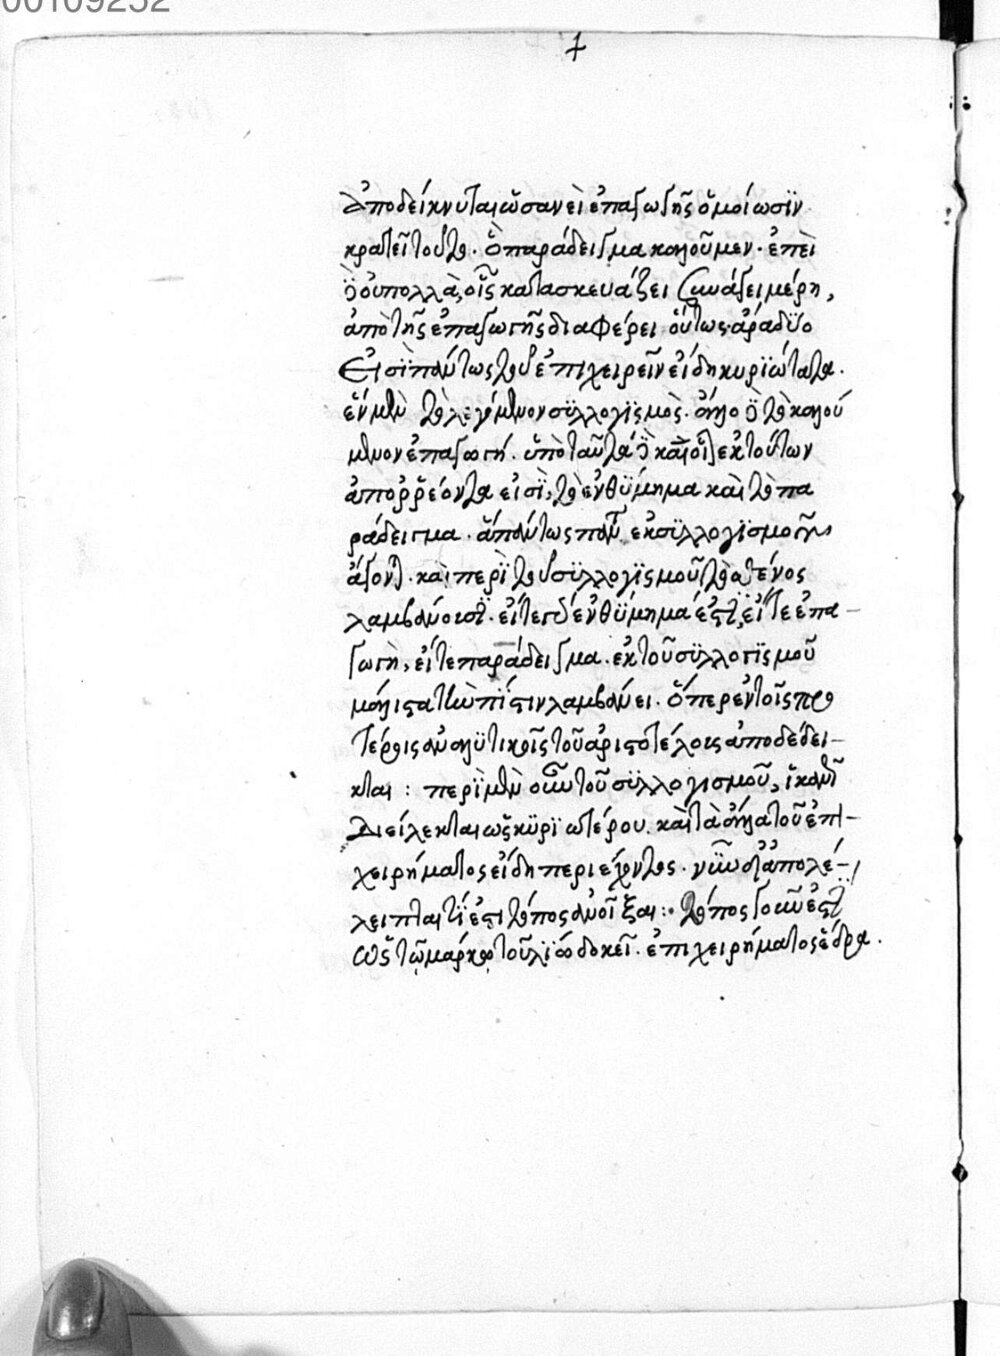 00109232
ἀποδείκνυται ὥσανεὶ ἐπαγωγῆς ὁμοίωσϊν
κρατεῖ τοῦτο. ὃ παράδειγμα καλοῦμεν. ἐπεὶ
δὲ οὐ πολλὰ, οἷς κατασκευάζει συνάγει μέρη,
ἀπὸ τῆς ἐπαγωγῆς διαφέρει οὕτως· ἄρα δύο
Εἰσὶ πάντως τοῦ ἐπιχειρεῖν εἴδη κυρϊώτατα.
ἓν μὲν τὸ λεγόμενον σϋλλογϊσμὸς. ἄλλο δὲ τὸ καλού
μενον ἐπαγωγή. ὑπὸ ταῦτα δὲ καὶ οἷον ἐκ τούτων
ἀπορῥέοντα εἰσὶ, τὸ ἐνθϋμημα καὶ τὸ πα
ράδειγμα. ἅ πάντως πάντα ἐκ σϋλλογϊσμοῦ
ἄγονται. καὶ περὶ τοῦ σϋλλογϊσμοῦ τὸ σθένος
λαμβάνουσι. εἴτε γὰρ ἐνθϋμημά ἐστι, εἴτε ἐπα-
γωγὴ, εἴτε παράδειγμα. ἐκ τοῦ σϋλλογϊσμοῦ
μάλιστα τὴν πίστιν λαμβάνει. ὅπερ ἐν τοῖς προ
τέροις ἀναλϋτικοῖς τοῦ ἀριστοτέλους ἀποδέδει-
κται: περὶ μὲν οὖν τοῦ σϋλλογισμοῦ, ἱκανῶς
Διείλεκται ὡς κϋρϊωτέρου. καὶ τὰ ἄλλα τοῦ ἐπι-
χειρήματος εἴδη περιέχοντος. νῦν δὲ ἀπολέ-
λειπται τί ἐστι τόπος ἀνοῖξαι: τόπος γοῦν ἐστι
ὡς τῷ μάρκῳ τουλίῳ δοκεῖ. ἐπιχειρήματος ἕδρα.